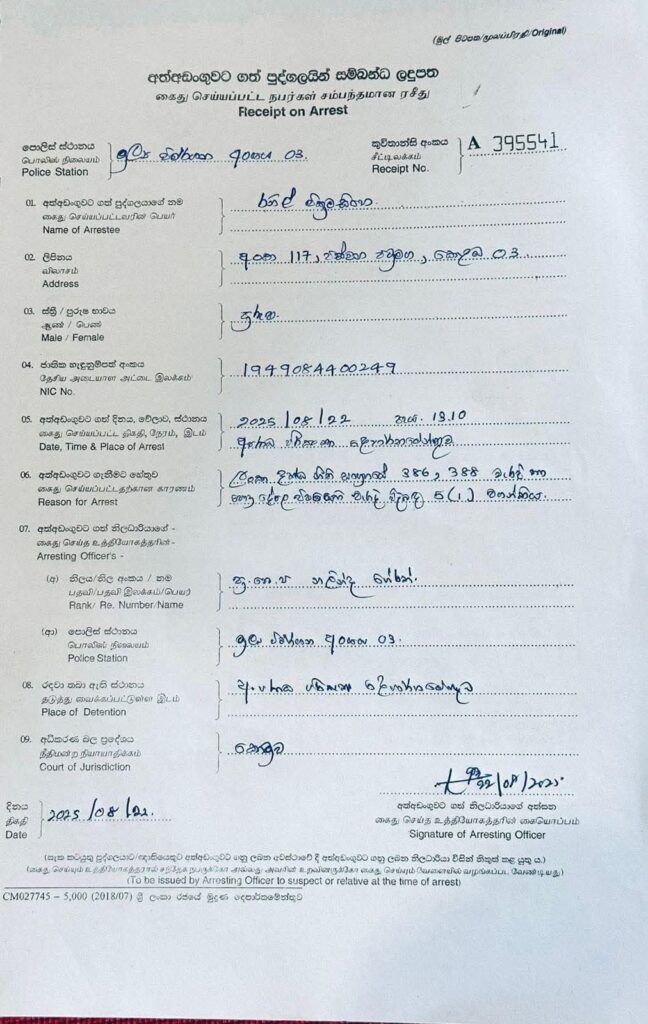 (මුල් පිටපත/மூலப்பிரதி/Original)
අත්අඩංගුවට ගත් පුද්ගලයින් සම්බන්ධ ලදුපත
கைது செய்யப்பட்ட நபர்கள் சம்பந்தமான ரசீது
Receipt on Arrest
පොලිස් ස්ථානය
பொலிஸ் நிலையம்
Police Station
අංශය 03.
කුවිතාන්සි අංකය
சீட்டிலக்கம்
Receipt No.
A 395541
01. අත්අඩංගුවට ගත් පුද්ගලයාගේ නම
கைது செய்யப்பட்டவரின் பெயர்
Name of Arrestee
රනිල් වික්‍රමසිංහ
02. ලිපිනය
விலாசம்
Address
අංක 117, පටුමග, කොළඹ 03.
03. ස්ත්‍රී / පුරුෂ භාවය
ஆண் / பெண்
Male / Female
පුරුෂ
04. ජාතික හැඳුනුම්පත් අංකය
தேசிய அடையாள அட்டை இலக்கம்
NIC No.
1949084400249
05. අත්අඩංගුවට ගත් දිනය, වේලාව, ස්ථානය
கைது செய்யப்பட்ட திகதி, நேரம், இடம்
Date, Time & Place of Arrest
2025/08/22 පැය. 13.10
අපරාධ පරීක්ෂණ දෙපාර්තමේන්තුව
06. අත්අඩංගුවට ගැනීමට හේතුව
கைது செய்யப்பட்டதற்கான காரணம்
Reason for Arrest
දණ්ඩ නීති සංග්‍රහයේ 386, 388 වැරදි හා
පොදු දේපල 5(1) වගන්තිය.
07. අත්අඩංගුවට ගත් නිලධාරියාගේ -
கைது செய்த உத்தியோகத்தரின்-
Arresting Officer's -
(අ) නිලය/නිල අංකය / නම
பதவி/பதவி இலக்கம்/பெயர்
Rank/ Re. Number/Name
(ආ) පොලිස් ස්ථානය
பொலிஸ் நிலையம்
Police Station
අංශය 03.
08. රඳවා තබා ඇති ස්ථානය
தடுத்து வைக்கப்பட்டுள்ள இடம்
Place of Detention
පරීක්ෂණ දෙපාර්තමේන්තුව
09. අධිකරණ බල ප්‍රදේශය
நீதிமன்ற நியாயாதிக்கம்
Court of Jurisdiction
කොටුව
22/08/2025
දිනය
திகதி
Date
2025/08/22.
අත්අඩංගුවට ගත් නිලධාරියාගේ අත්සන
கைது செய்த உத்தியோகத்தரின் கையொப்பம்
Signature of Arresting Officer
(සැක කටයුතු පුද්ගලයාට/ඥාතියෙකුට අත්අඩංගුවට ගනු ලබන අවස්ථාවේ දී අත්අඩංගුවට ගනු ලබන නිලධාරියා විසින් නිකුත් කළ යුතු ය.)
(கைது செய்யும் உத்தியோகத்தரால் சந்தேக நபருக்கோ அல்லது அவரின் உறவினருக்கோ கைது செய்யும் வேளையில் வழங்கப்பட வேண்டியது)
(To be issued by Arresting Officer to suspect or relative at the time of arrest)
CM027745 – 5,000 (2018/07) ශ්‍රී ලංකා රජයේ මුද්‍රණ දෙපාර්තමේන්තුව